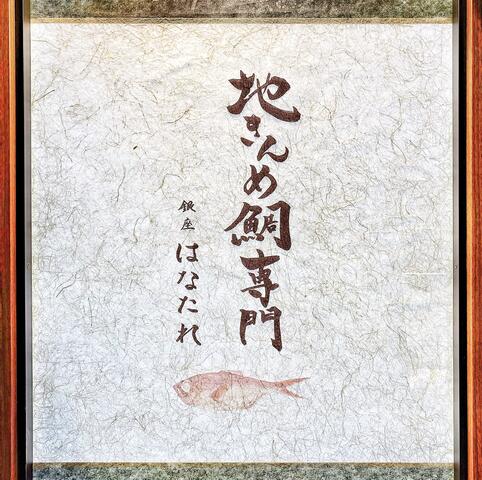 地きんめ鯛専門
銀座
はなたれ